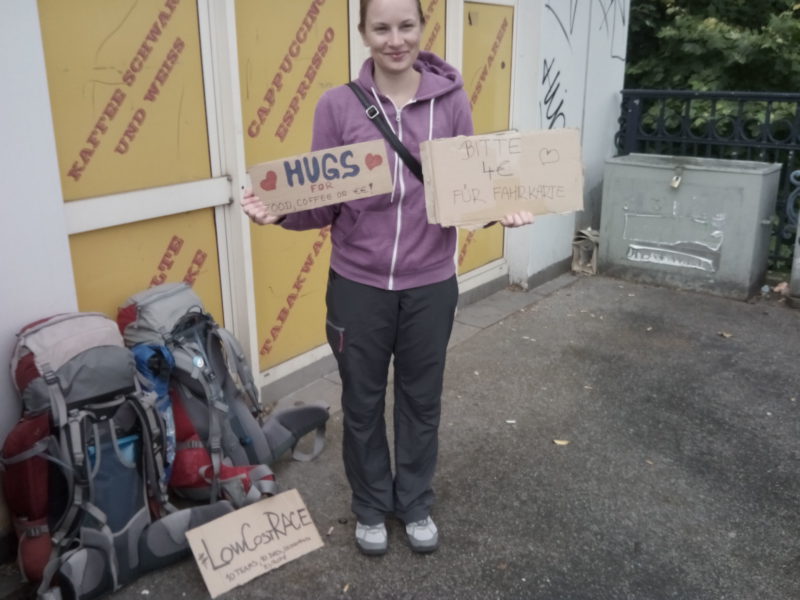 KAFFEE SCHWARZ
UND WEISS
CAPPUCCINO
ESPRESSO
TABAKWAREN
HUGS
FOR
FOOD, COFFEE OR €€!
BITTE
4€
FÜR FAHRKARTE
#LowCostRACE
10 TEAMS, 10 DAYS,